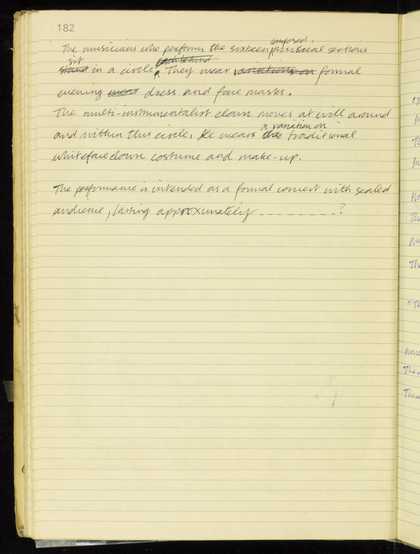 182
composed
The musicians who perform the sixteen sections
sit
in a circle. They wear variations on formal
evening wear dress and face masks.
The multi-instrumentalist clown moves at will around
a variation on
and within this circle. He wears the traditional
whiteface clown costume and make-up.
The performance is intended as a formal concert with seated
audience, lasting approximately _ _ _ _ _ _ _ _ _ ?